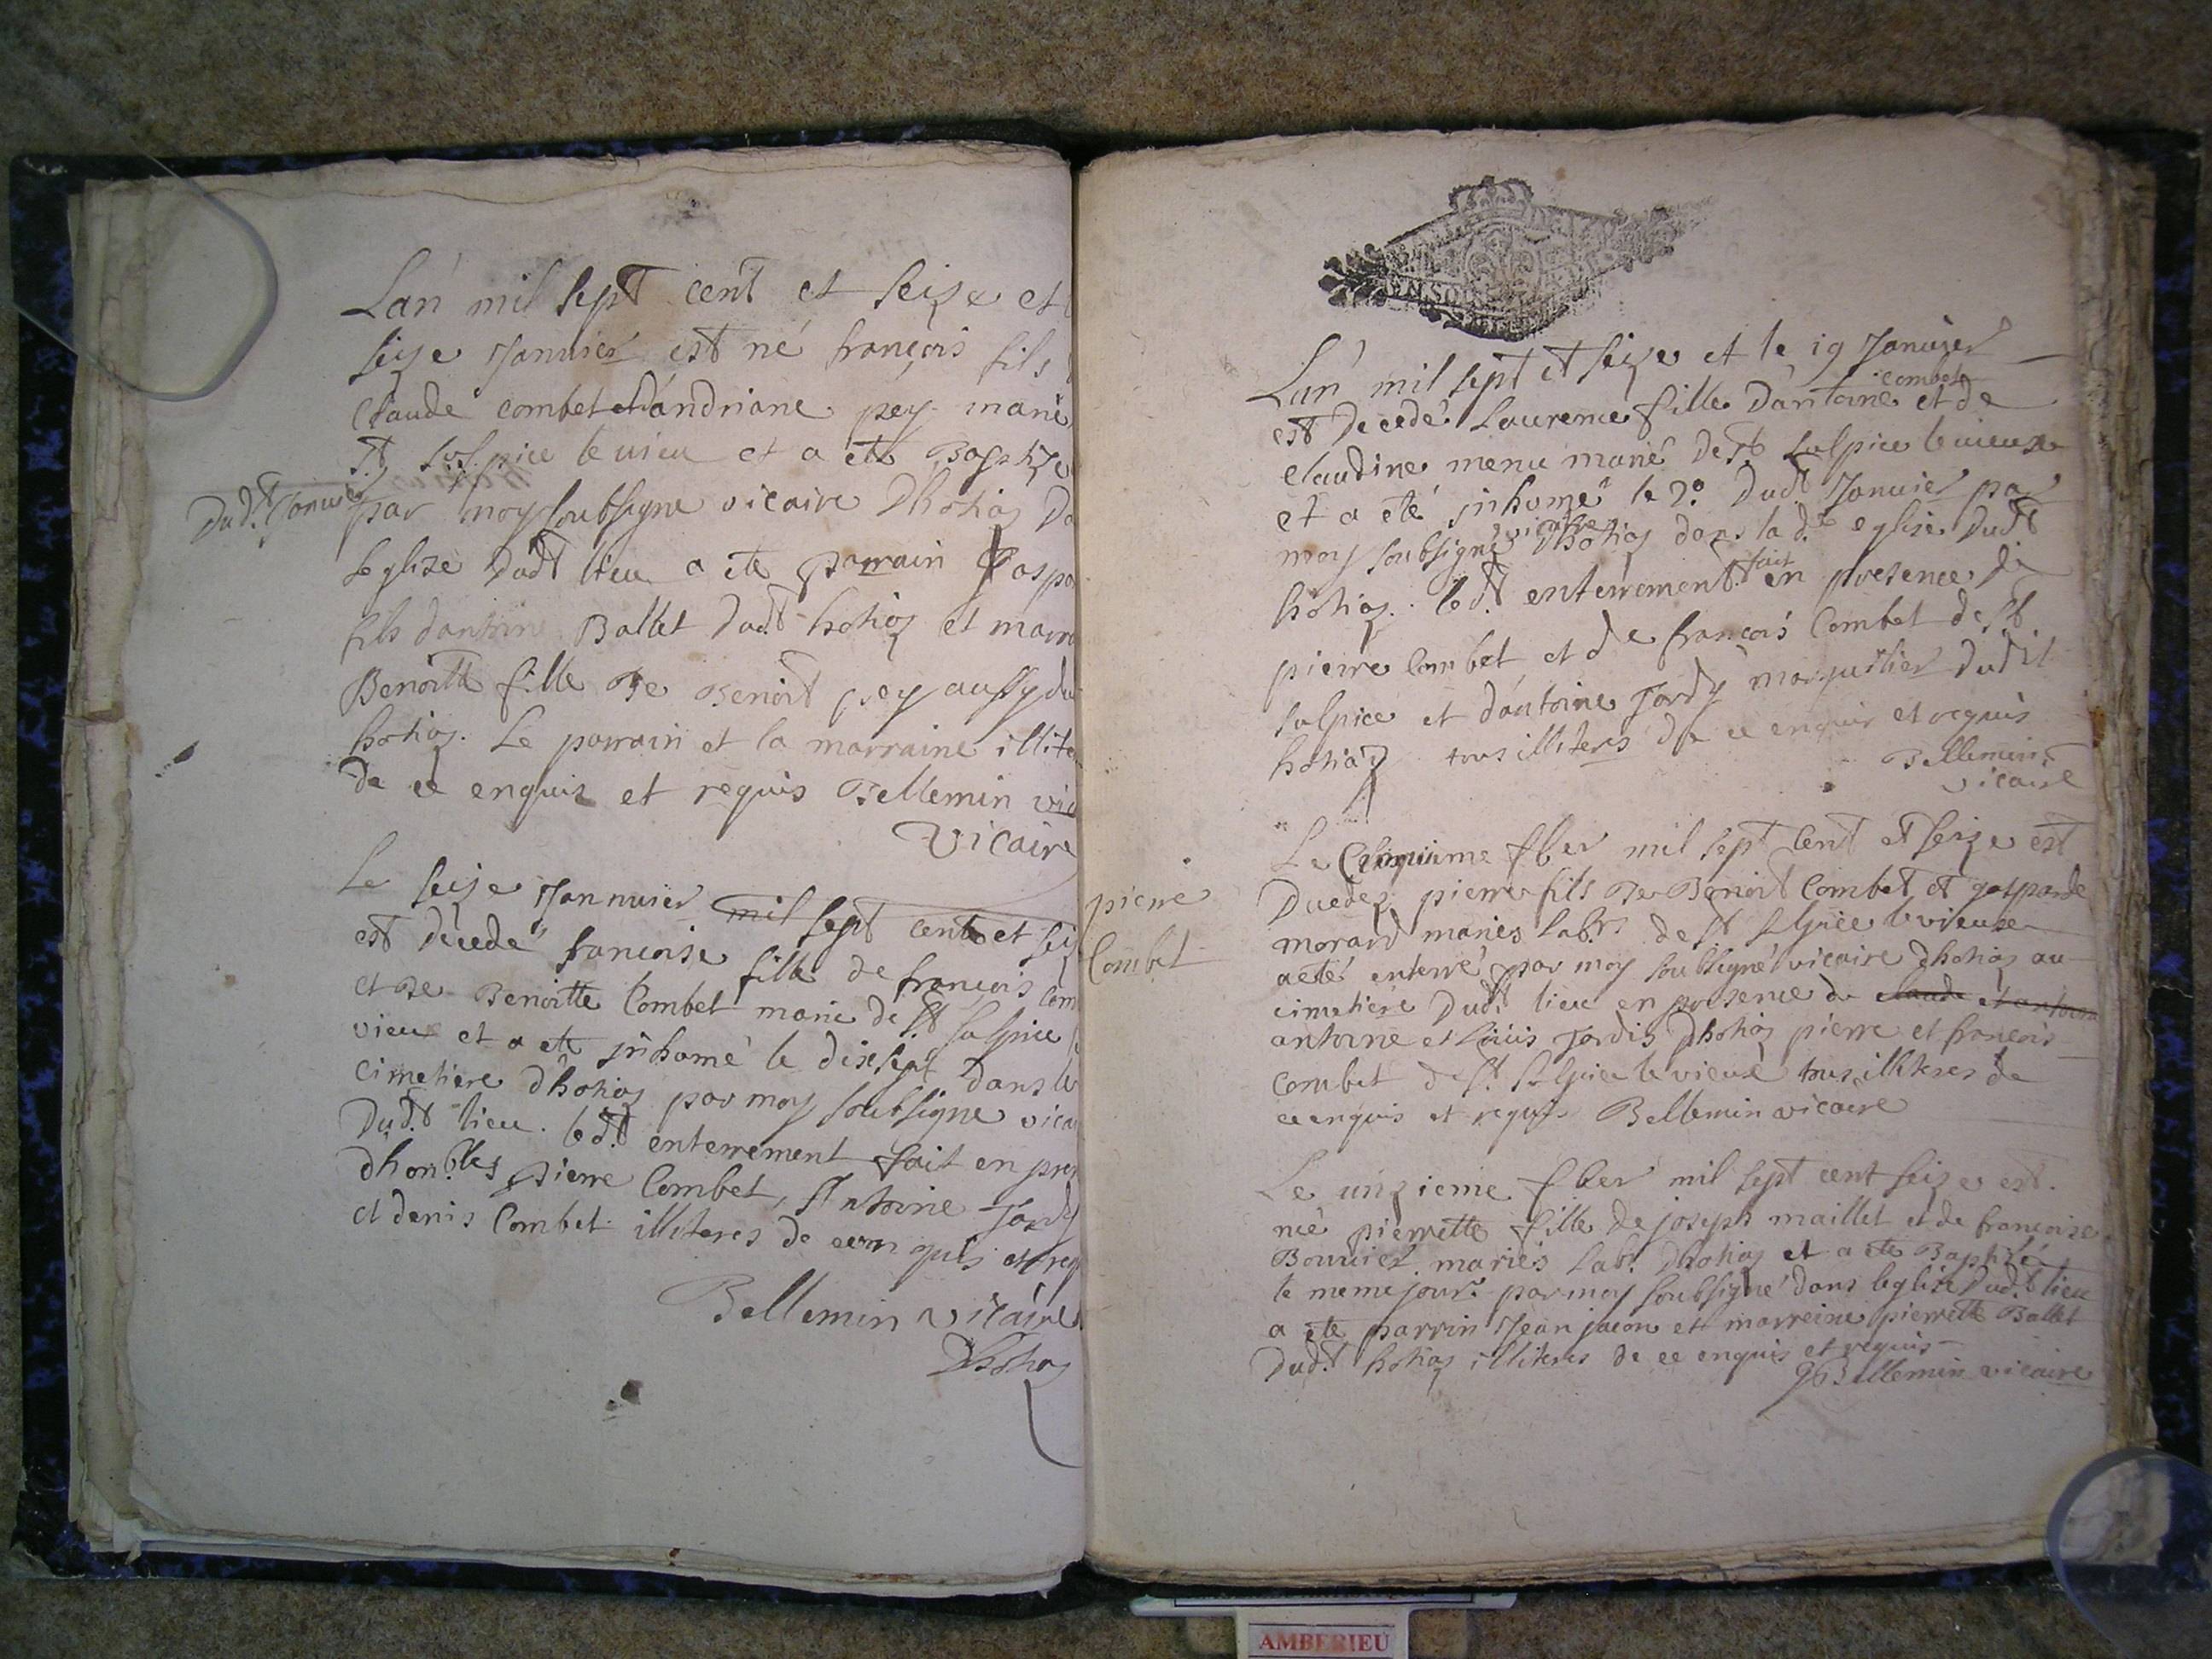 Lan mil sept cent et seize et
seize Januier est né françois fils
Claude combet et dandriane pey mariés
St sulpice le uieu et a ete Baptize
Dudt Januier
par moy soubsigne vicaire Dhotiaz Da
leglize Dudt lieu a ete parrain Gaspa
fils dantoine Ballet Dudt hotiaz et marra
Benoitte fille De Benoit pey aussy du
hotiaz. Le parrain et la marraine illite
de ce enquis et requis Bellemin vic
vicaire
Le seize Jannuier mil sept cent et sei
est décedé francoise fille de francois Com
et De Benoitte Combet marie de St sulpice le
vieux et a ete inhumé le dixsept dans le
cimetiere dhotiaz par moy soubsigne vica
Dudt lieu. ledt enterrement fait en pres
dhonbles Pierre Combet, Antoine Jordy
et denis Combet illiteres de ce enquis et req
Bellemin vicaire
Dhotiaz
Lan mil sept et seize et le 19 Januier
combet
est Decedé Laurence fille Dantoine et de
claudine menu marié De St sulpice le uieux
et a eté inhumé le 20 Dudt Januier par
vicaire
moy soubsigné Dhotiaz dans la dte eglise Dudt
fait
hotiaz. ledt enterrement en presence de
pierre Combet et de francois Combet de St
sulpice et dantoine Jordy marguillier Dudit
hotiaz tous illiteres de ce enquis et requis
Bellemin
vicaire
pierre
Combet
Le Cinquieme fber mil sept cent et seize est
Decedez pierre fils De Benoit Combet et gasparde
morard mariés labrs de St sulpice le vieux
a eté enterré par moy soubsigné vicaire dhotiaz au
cimetiere Dudt lieu en presence de claude et antoine
antoine et Louis Jordis Dhotiaz pierre et francois
combet de St sulpice le vieux tous illiteres de
ce enquis et requis Bellemin vicaire
Le unzieme fber mil sept cent seize est
neé pierrette fille de joseph maillet et de francoise
Bouvier mariés lab. Dhotiaz et a ete Baptisée
le meme jour par moy soubsigné dans leglise Dudt lieu
a ete parrin Jean jacon et marreine pierrette Ballet
Dudt hotiaz illiteres de ce enquis et requis
Bellemin vicaire
AMBERIEU